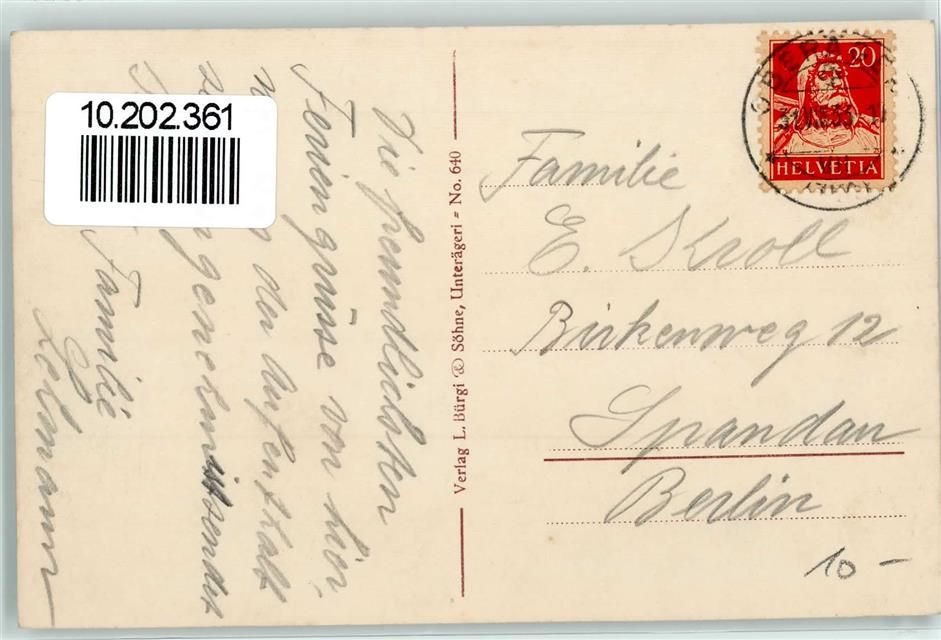 10.202.361
Die freundlichsten
Feriengrüsse von hier,
der Aufenthalt
sendet
Familie
Lehmann
Verlag L. Bürgi & Söhne, Unterägeri - No. 640
20
HELVETIA
Familie
E. Kroll
Birkenweg 12
Spandau
Berlin
10 -